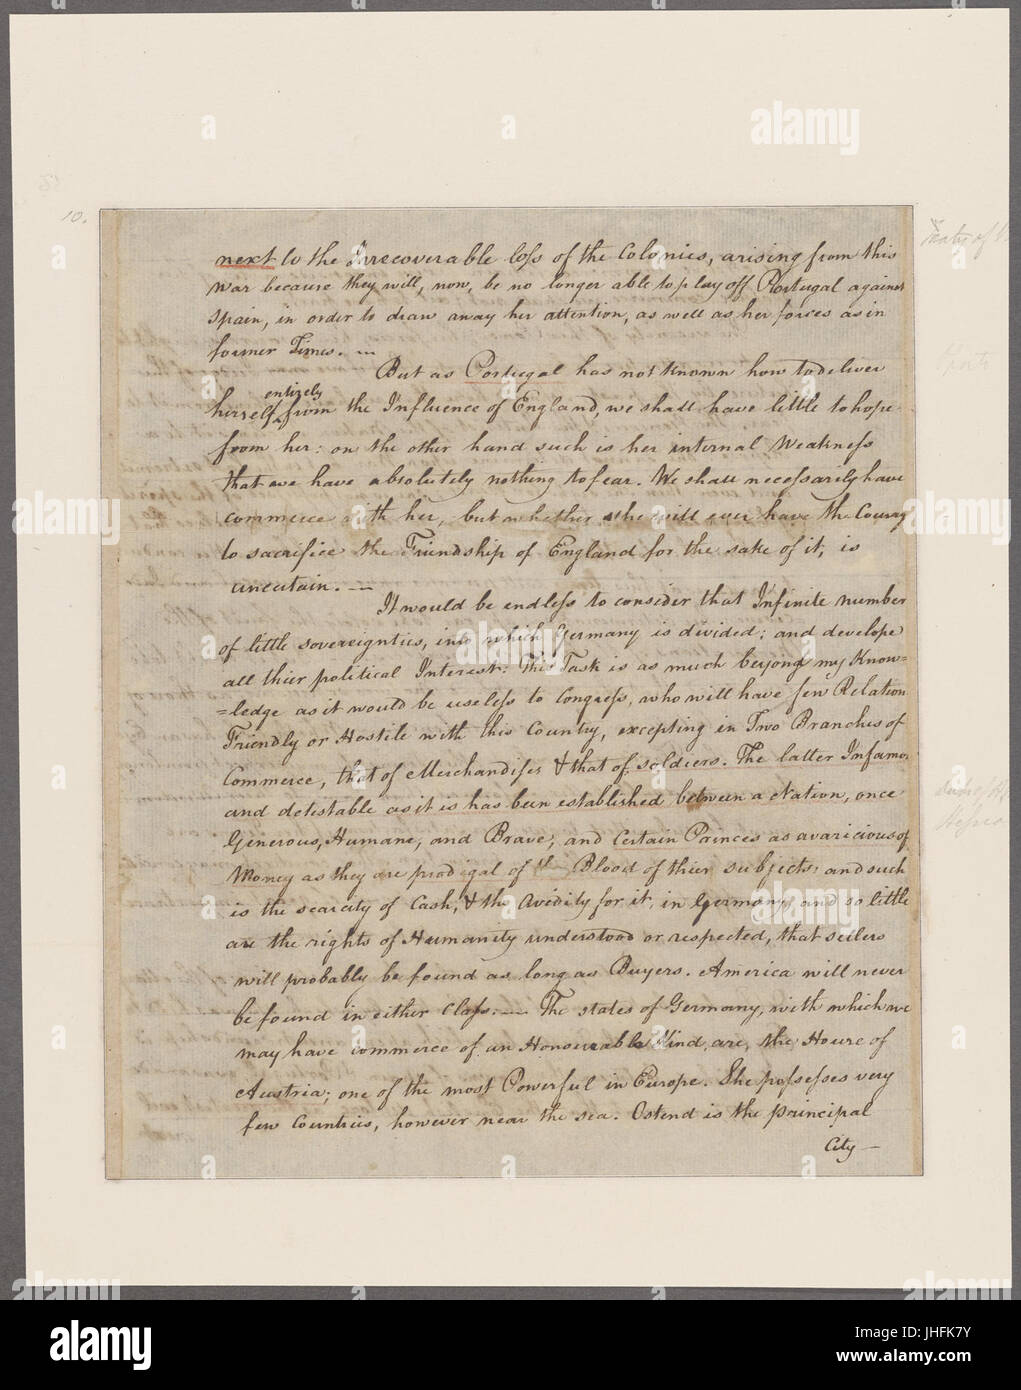 10.
next to the Irrecoverable loss of the Colonies, arising from this
War because they will, now, be no longer able to play off Portugal against
Spain, in order to draw away her attention, as well as her forces as in
former Times. —
But as Portugal has not known how to deliver
entirely
herself from the Influence of England, we shall have little to hope
from her: on the other hand such is her internal Weakness
that we have absolutely nothing to fear. We shall necessarily have
commerce with her, but whether she will ever have the Courag
to sacrifice the Friendship of England for the sake of it, is
uncertain. —
It would be endless to consider that Infinite number
of little sovereignties, into which Germany is divided; and develope
all thier political Interest: This Task is as much beyong my Know=
=ledge as it would be useless to Congress, who will have few Relation
Friendly or Hostile with this Country, excepting in Two Branches of
Commerce, that of Merchandises & that of soldiers. The latter Infamo
and detestable as it is has been established between a Nation, once
Generous, Humane, and Brave; and Certain Princes as avaricious of
Money as they are prodigal of the Blood of thier subjects: and such
is the scarcity of Cash, & the Avidity for it, in Germany, and so little
are the rights of Humanity understood or respected, that sellers
will probably be found as long as Buyers. America will never
be found in either Class. — The states of Germany, with which we
may have commerce of an Honourable Kind, are, the House of
Austria; one of the most Powerful in Europe. She possesses very
few Countries, however near the sea. Ostend is the principal
City —
alamy
alamy stock photo
JHFK7Y
www.alamy.com